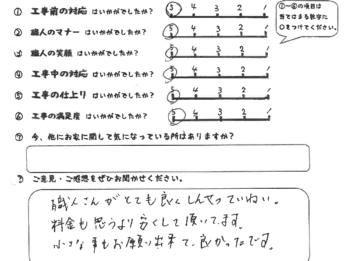 ① 工事前の対応 はいかがでしたか? 5 4 3 2 1
② 職人のマナー はいかがでしたか? 5 4 3 2 1
③ 職人の笑顔 はいかがでしたか? 5 4 3 2 1
④ 工事中の対応 はいかがでしたか? 5 4 3 2 1
⑤ 工事の仕上り はいかがでしたか? 5 4 3 2 1
⑥ 工事の満足度 はいかがでしたか? 5 4 3 2 1
①〜⑥の項目は
当てはまる数字に
○をつけてください。
⑦ 今、他にお家に関して気になっている所はありますか?
⑧ ご意見・ご感想をぜひお聞かせください。
職人さんがとても良くしんせつていねい。
料金も思うより安くして頂いてます。
小さな事もお願い出来て、良かったです。